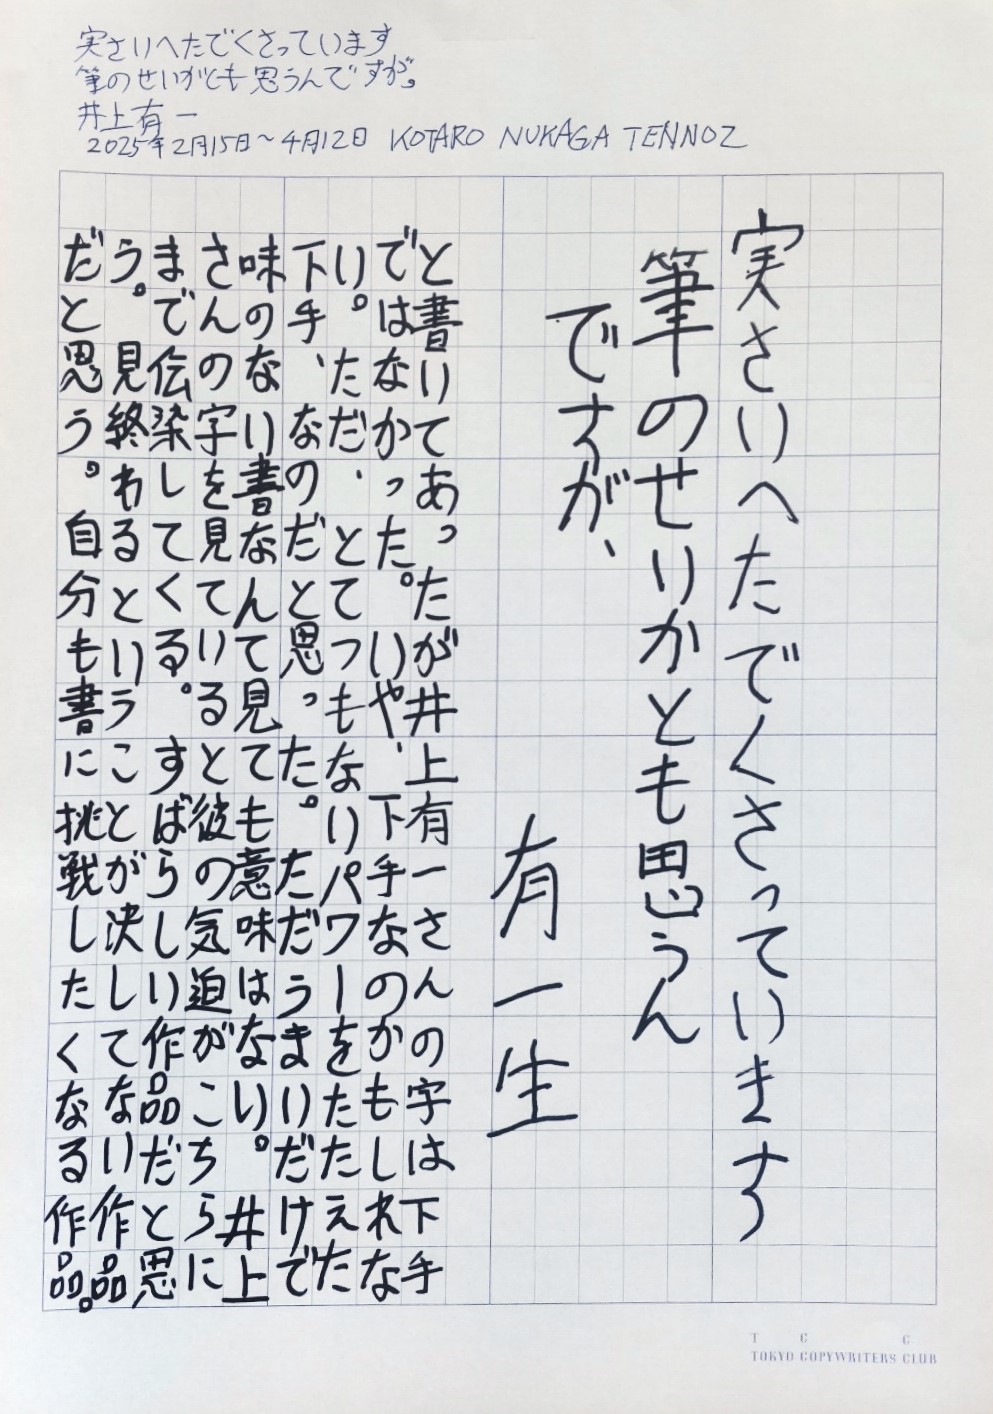 実さいへたでくさっています
筆のせいかとも思うんですが。
井上有一
2025年2月15日〜4月12日 KOTARO NUKAGA TENNOZ
実さいへたでくさっています
筆のせいかとも思うん
ですが、
有一生
と書いてあったが井上有一さんの字は下手
ではなかった。いや、下手なのかもしれな
い。ただ、とてつもないパワーをたたえた
下手、なのだと思った。ただうまいだけで
味のない書なんて見ても意味はない。井上
さんの字を見ていると彼の気迫がこちらに
まで伝染してくる。すばらしい作品だと思
う。見終わるということが決してない作品
だと思う。自分も書に挑戦したくなる作品。
T C C
TOKYO COPYWRITERS CLUB